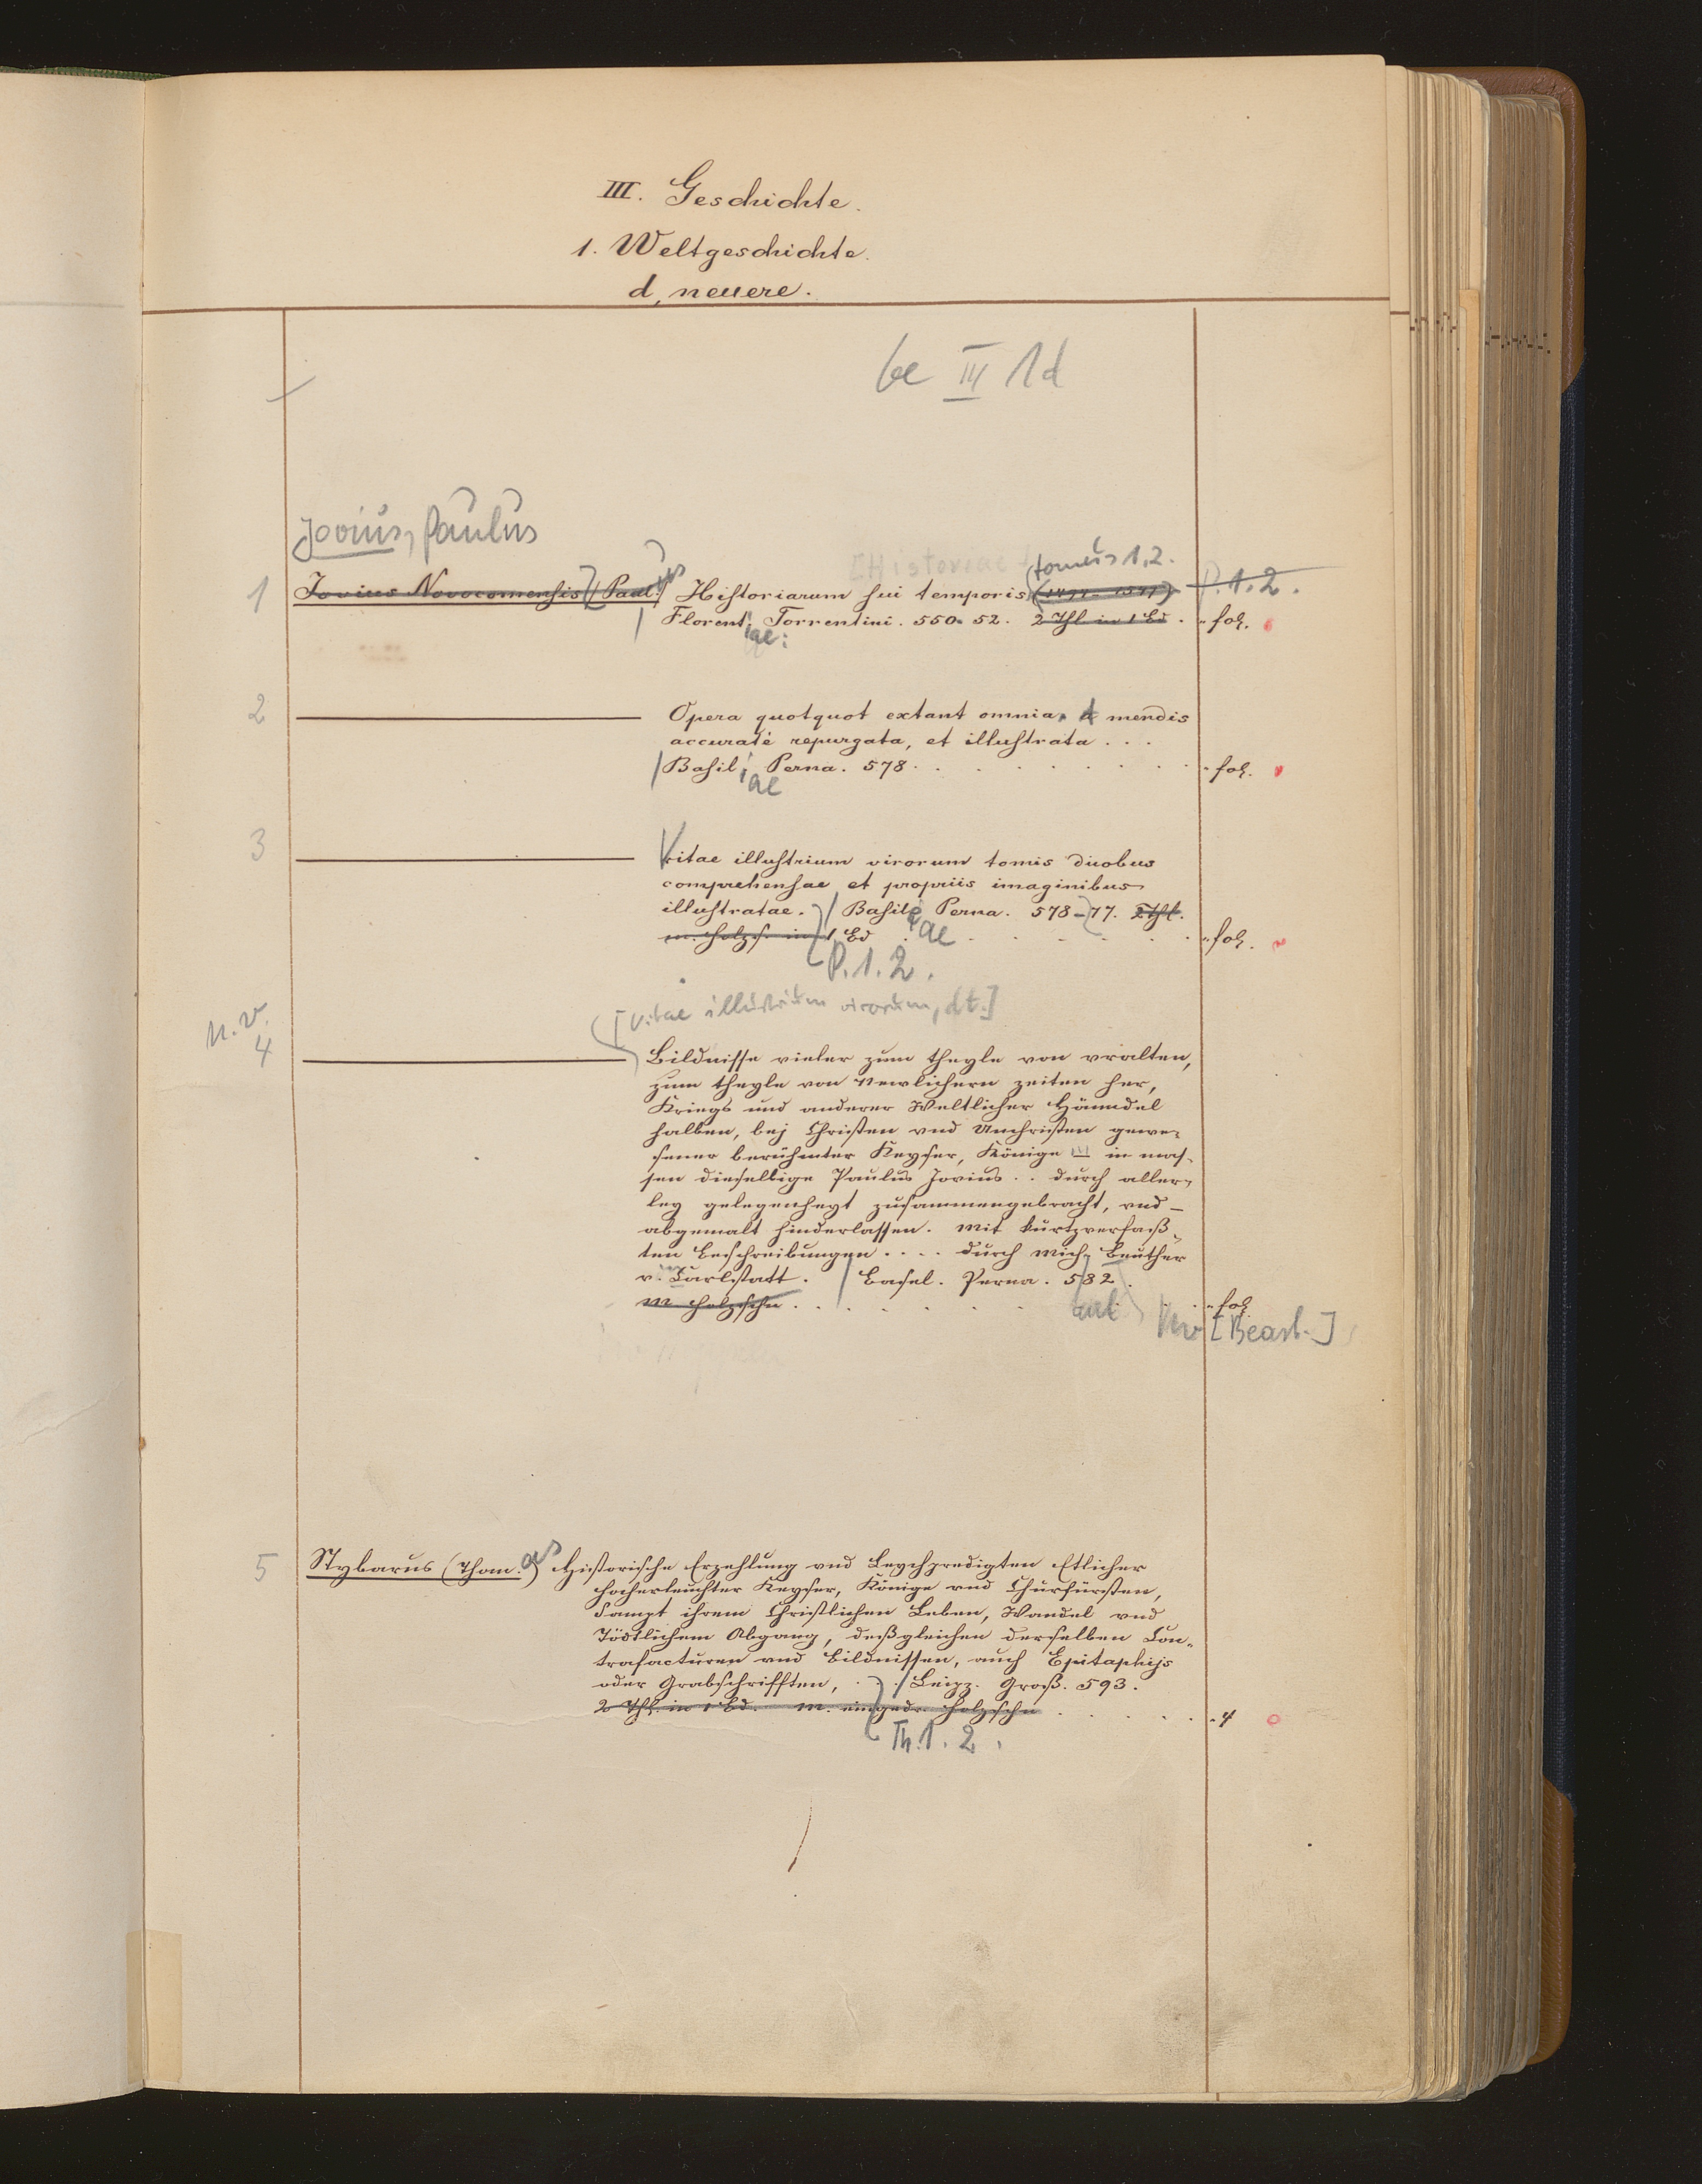 III. Geschichte.
1. Weltgeschichte.
d, neuere.
be III 1d
Jovius, Paulus
[Historiae
tomus 1, 2.
1 Jovius Novocomensis (Paul.) us Historiarum sui temporis (1494-1547) P. 1. 2.
Florent. Torrentini. 550-52. 2 Thl in 1 Bd. fol.
iae:
2 Opera quotquot extant omnia, a mendis
accuratè repurgata, et illustrata . . .
Basil. Perna. 578. fol.
iae
3 Vitae illustrium virorum tomis duobus
comprehensae, et propriis imaginibus
illustratae. Basil. Perna. 578-77. 2 Thl.
m. Holzs. in 1 Bd iae fol.
P. 1. 2.
[Vitae illustrium virorum, dt.]
n. v.
4 Bildnisse vieler zum theyle von vralten,
zum theyle von newlichern zeiten her,
Kriegs und anderer Weltlicher Hänndel
halben, bej Christen vnd Unchristen gewe-
sener berühmter Keyser, Könige in mas-
sen dieselbige Paulus Jovius . . durch aller-
ley gelegenheyt zusammengebracht, vnd
abgemalt hinderlassen. mit kurtzverfaß-
ten Beschreibungen . . . . durch Mich. Beuther
v. Carlstatt. Basel. Perna. 582.
m. Holzschn . . . fol.
[Bearb.]
5 Stybarus (Thom.) as Historische Erzehlung vnd Leychpredigten Etlicher
Hocherleuchter Keyser, Könige vnd Churfürsten,
Sampt ihrem Christlichen Leben, Wandel vnd
Tödtlichem Abgang, deßgleichen derselben Con-
trafacturen vnd Bildnissen, auch Epitaphijs
oder Grabschrifften, . . Leipz. Groß. 593.
2 Thl. in 1 Bd. m. eingedr. Holzschn . 4
Th. 1. 2.